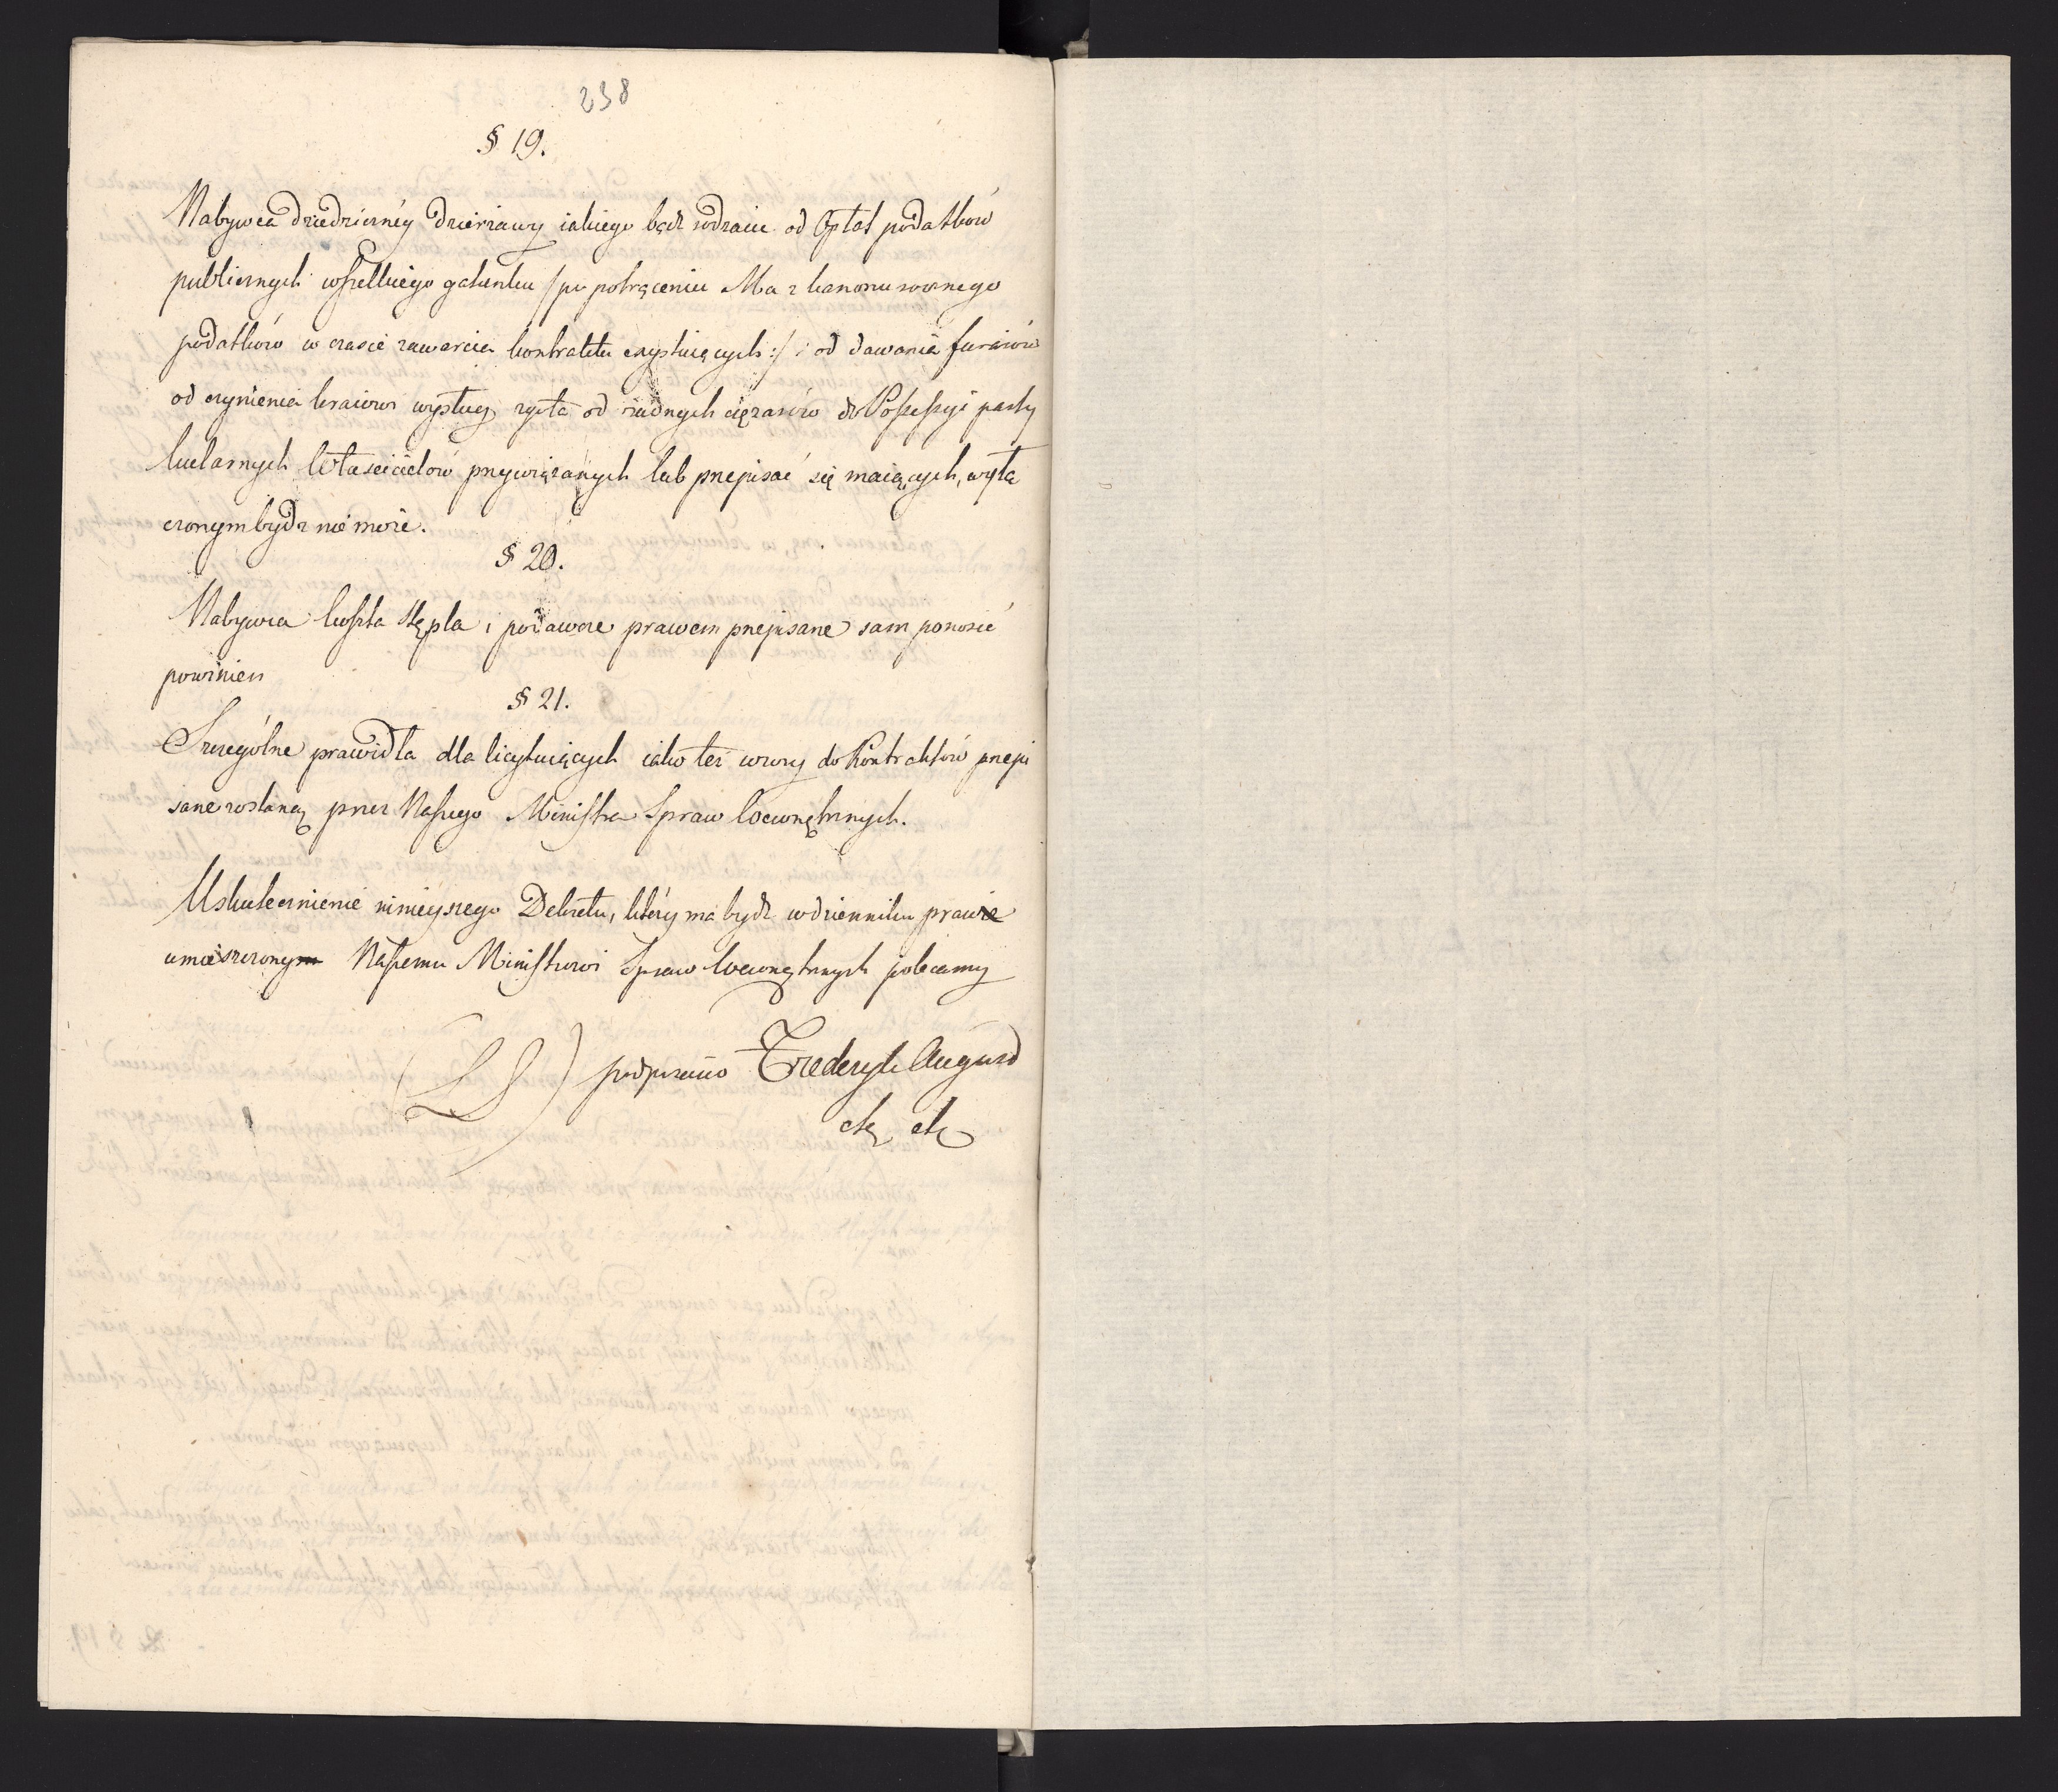 238
§ 19.
Nabywca dziedziczney dzierżawy iakiego bądz rodzaiu od Opłat podatków
publicznych wszelkiego gatunku /: po potrąceniu Mu z kanonu rocznego
podatków w czasie zawarcia kontraktu exystuiących :/ od dawania furażów
od czynienia kraiowi wysług, zgoła od żadnych ciężarów do Possessyi party
kularnych Właścicielów przywiązanych lub przepisać się maiących, wyłą
czonym bydz nie może.
§ 20.
Nabywca koszta stępla i podawcze prawem przepisane sam ponosić
powinien
§ 21.
Szczególne prawidła dla licytuiących iako też wzory do Kontraktów przepi
sane zostaną przez Naszego Ministra Spraw Wewnętrznych.
Uskutecznienie ninieyszego Dekretu, który ma bydz w dzienniku praw
umieszczony Naszemu Ministrowi Spraw Wewnętrznych polecamy
(L S) podpisano Fryderyk August
etc etc